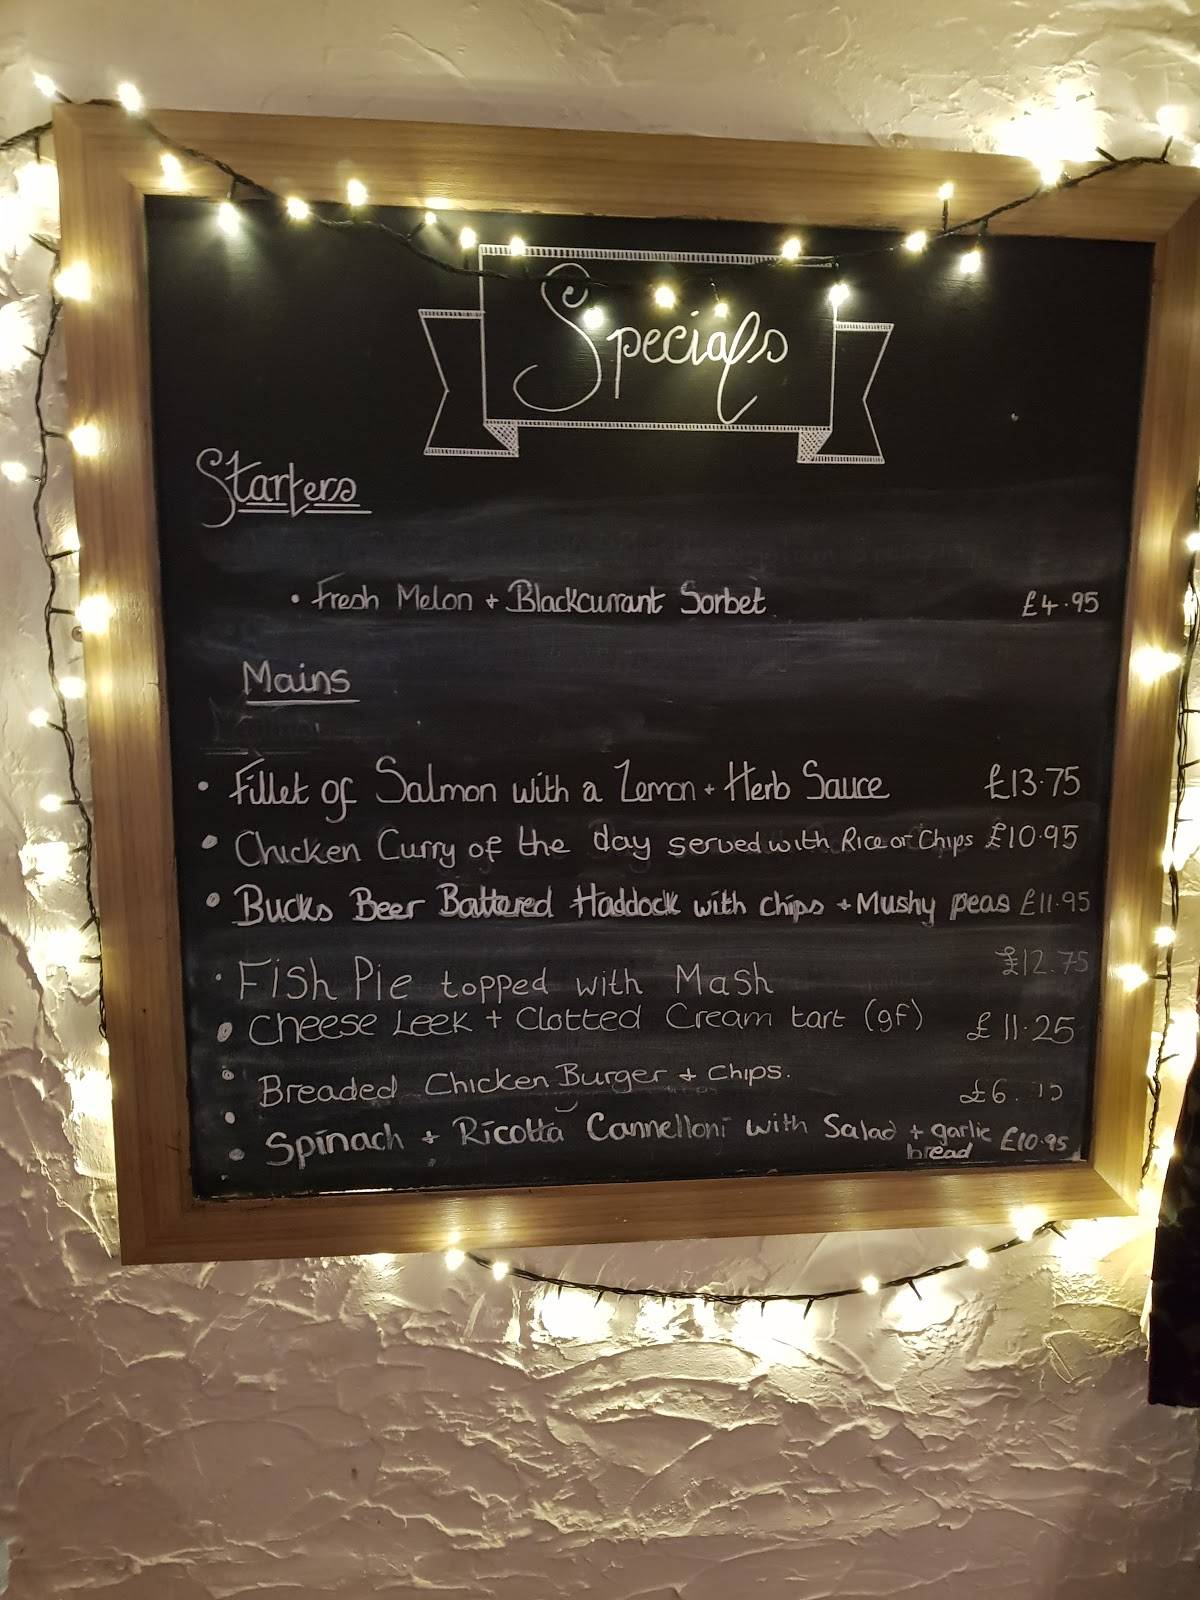 Specials
Starters
• Fresh Melon + Blackcurrant Sorbet £4.95
Mains
• Fillet of Salmon with a Lemon + Herb Sauce £13.75
• Chicken Curry of the day served with Rice or Chips £10.95
• Bucks Beer Battered Haddock with chips + Mushy peas £11.95
• Fish Pie topped with Mash £12.75
• Cheese Leek + Clotted Cream tart (gf) £11.25
• Breaded Chicken Burger + Chips.
• Spinach + Ricotta Cannelloni with Salad + garlic £10.95
bread